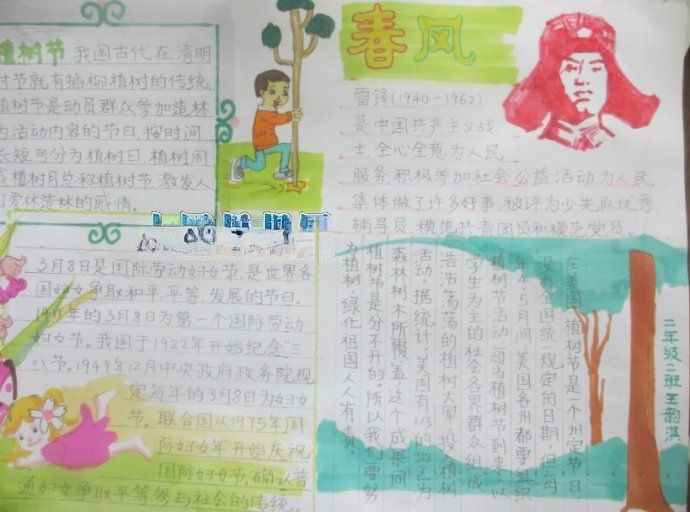 植树节 我国古代在清明
时节就有插柳植树的传统,
植树节是动员群众参加造林
为活动内容的节日,按时间
长短可分为植树日、植树周
或植树月总称植树节,激发人
们爱林造林的感情。
春风
雷锋(1940-1962)
是中国共产主义战
士,全心全意为人民
服务,积极参加社会公益活动,为人民
集体做了许多好事,被评为少先队优秀
辅导员、模范共青团员和模范党员。
3月8日是国际劳动妇女节,是世界各
国妇女争取和平、平等、发展的节日。
的3月8日为第一个国际劳动
妇女节。我国于1922年开始纪念"三
八"节。1949年12月中央政府政务院规
定每年的3月8日为妇女
节。联合国从1975年国
际妇女年开始庆祝
国际妇女节,确认普
通妇女争取平等参与社会的传统。
在美国,植树节是一个州定节日
没有全国统一规定的日期。但每
年4、5月间,美国各州都要组织
植树节活动。每当植树节到来,以
学生为主的社会各界群众组成
浩浩荡荡的植树大军,投入植树
活动。据统计,美国有1/3的地区为
森林树木所覆盖,这个成果同
植树节是分不开的。所以我们要努
力植树,绿化祖国人人有责。
二年级二班王韵淇